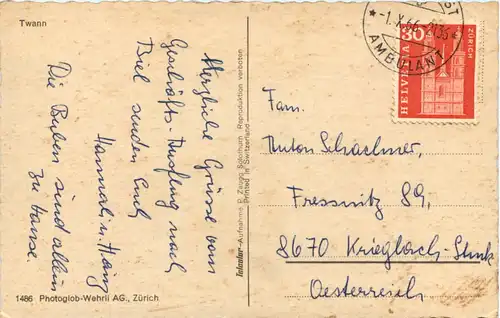 Twann
Herzliche Grüsse vom
Geschäfts-Ausflug nach
Biel senden Euch
Hannerl u. Hans
Die Buben sind allein
zu Hause.
1486 Photoglob-Wehrli AG., Zürich
Aufnahme P. Zaugg Solothurn Reproduktion verboten
Printed in Switzerland
-1.X.66-21
AMBULANT
HELVETIA 30
ZÜRICH
Fam.
Anton Schachner
Fressnitz 89,
8670 Krieglach-Stmk
Oesterreich